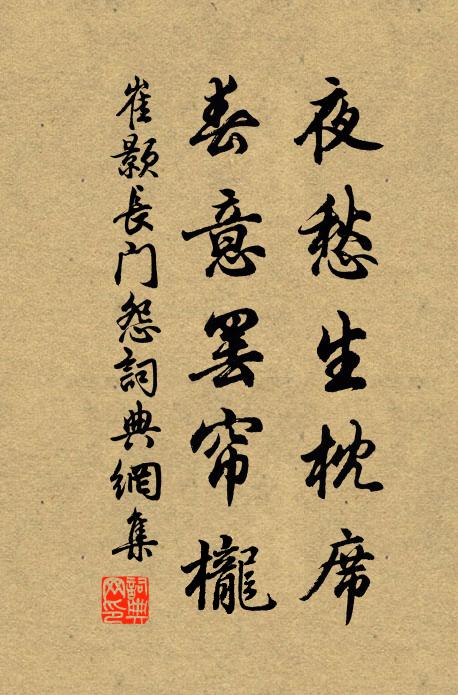 夜愁生枕席
春意罢帘櫳
崔颢長门怨詞典網集
詞典网印